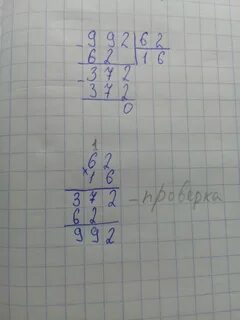 - 992 | 62
62 | 16
- 372
372
0
1
62
× 16
372 - проверка
62
992